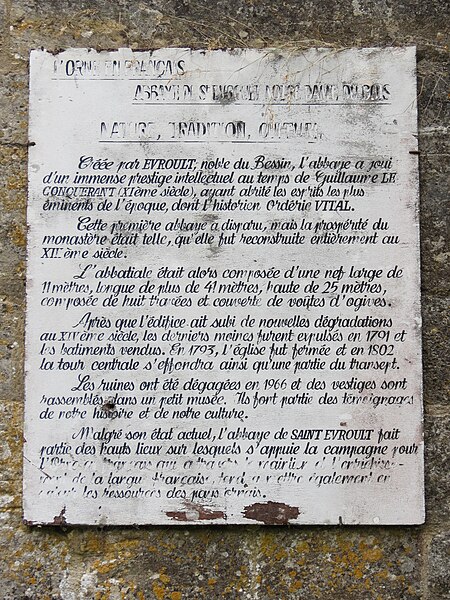 L'ORNE EN FRANÇAIS
ABBAYE DE St EVROULT NOTRE DAME DU BOIS
NATURE, TRADITION, CULTURE
Créée par EVROULT, noble du Bessin, l'abbaye a joui
d'un immense prestige intellectuel au temps de Guillaume LE
CONQUERANT (XIème siècle), ayant abrité les esprits les plus
éminents de l'époque, dont l'historien Orderic VITAL.
Cette première abbaye a disparu, mais la prospérité du
monastère était telle, qu'elle fut reconstruite entièrement au
XII ème siècle.
L'abbatiale était alors composée d'une nef large de
11 mètres, longue de plus de 41 mètres, haute de 25 mètres,
composée de huit travées et couverte de voûtes d'ogives.
Après que l'édifice ait subi de nouvelles dégradations
au XIVème siècle, les derniers moines furent expulsés en 1791 et
les batiments vendus. En 1793, l'église fut fermée et en 1802
la tour centrale s'effondra ainsi qu'une partie du transept.
Les ruines ont été dégagées en 1966 et des vestiges sont
rassemblés dans un petit musée. Ils font partie des témoignages
de notre histoire et de notre culture.
Malgré son état actuel, l'abbaye de SAINT EVROULT fait
partie des hauts lieux sur lesquels s'appuie la campagne pour
l'Orne en français qui a travers le maintien et l'enrichisse-
ment de la langue française, tend à mettre également en
les ressources des pays ornais.